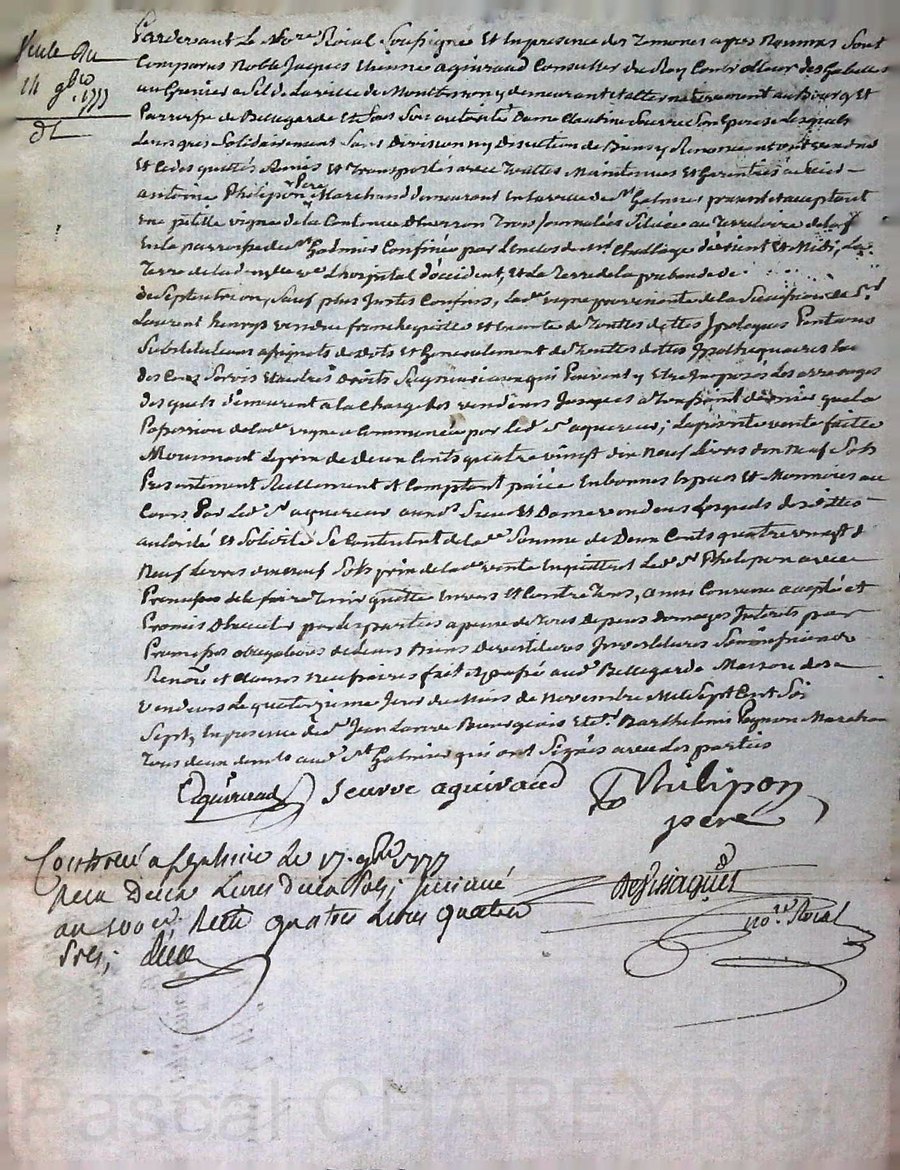 Vente Du
14 9bre
1777
Pardevant Le No.re Roial Soussigné Et En presence des Temoins apres Nommes Sont
Comparus Noble Jaques Etienne aguiraud Conseiller du Roy Controlleur des Gabelles
au Grenier a Sel de La ville de Montbrison y demeurant et alternativement au Bourg Et
Parroisse de Bellegarde Et Sous Son autorité Dame Claudine Seurre Son Epouse Lesquels
De Leurs gres Solidairement Sans Division ny Discution de Biens y Renoncant ont vendu
Et Cedes quittés Remis Et Transportés avec Toutes Maintenues Et Garenties a Sieur
antoine Philipon Pere Marchand demeurant En la ville de St Galmier present et acceptant
une petitte vigne de la Contenue D'Environ Trois Journalées Située au Territoire de la
En la parroisse de St Galmier Confinée par L'enclos de Mr Challaye d'orient Et Midi, La
Terre de la L'hospital d'occident, Et La Terre de la prebande de
de Septentrion, Sauf plus Justes Confins, Lad.e vigne provenante de la Succession de Sr
Laurent henrys vendue franche quitte et Exempte de Touttes dettes Ipoteques Pentions
Substitutions assignats de dots et Generalement de Touttes dettes Ipothequaires
des Cens Servis Et autres Droits Seigneuriaux qui Peuvent y Etre Imposés Les arrerages
desquels demeurent a la Charge des vendeurs Jusques a la Toussaint derniere que la
Possession de lad.e vigne a Commencée par led. Sr aquereur; La presente vente faitte
Moiennant Le prix de Deux Cents quatre vingt dix Neuf Livres dix neuf Sols
Presentement Reellement Et Comptant paiée En bonnes Especes Et Monnoies au
Cours Par led. Sr aquereur auxd. Sieur Et Dame vendeurs Lesquels de dittes
autorité et Solidité Se Contentent de lad.e Somme de Deux Cents quatre vingt d
Neuf Livres dix neuf Sols prix de lad.e vente En quittent Led. Sr Philipon avec
Promesse de le faire Tenir quitte Envers Et Contre Tous, ainsi Convenu accepté et
Promis Observer par les parties a peine de Tous depens domages Interets par
Promesses obligations de Leurs Biens Devestitures Investitures Soumissions
Renon.s et clauses necessaires fait Et passé aud. Bellegarde Maison des
vendeurs Le quatorzieme Jour du Mois de Novembre Mil Sept Cent Soi
Sept, En presence de Sr Jean Bourgeois Et Sr Barthelemi Peynon Marchan
Tous deux dem.ts aud. St Galmier qui ont Signés avec les parties
Eaguiraud Seurre aguiraud Philipon
pere
Controllé a St galmier Le 17. 9bre 1777
Recu Deux Livres deux Sols; Insinué
au 100 er; Recu quatre Livres quatre
Sols;
no.re Roial
Pascal CHAREYRON